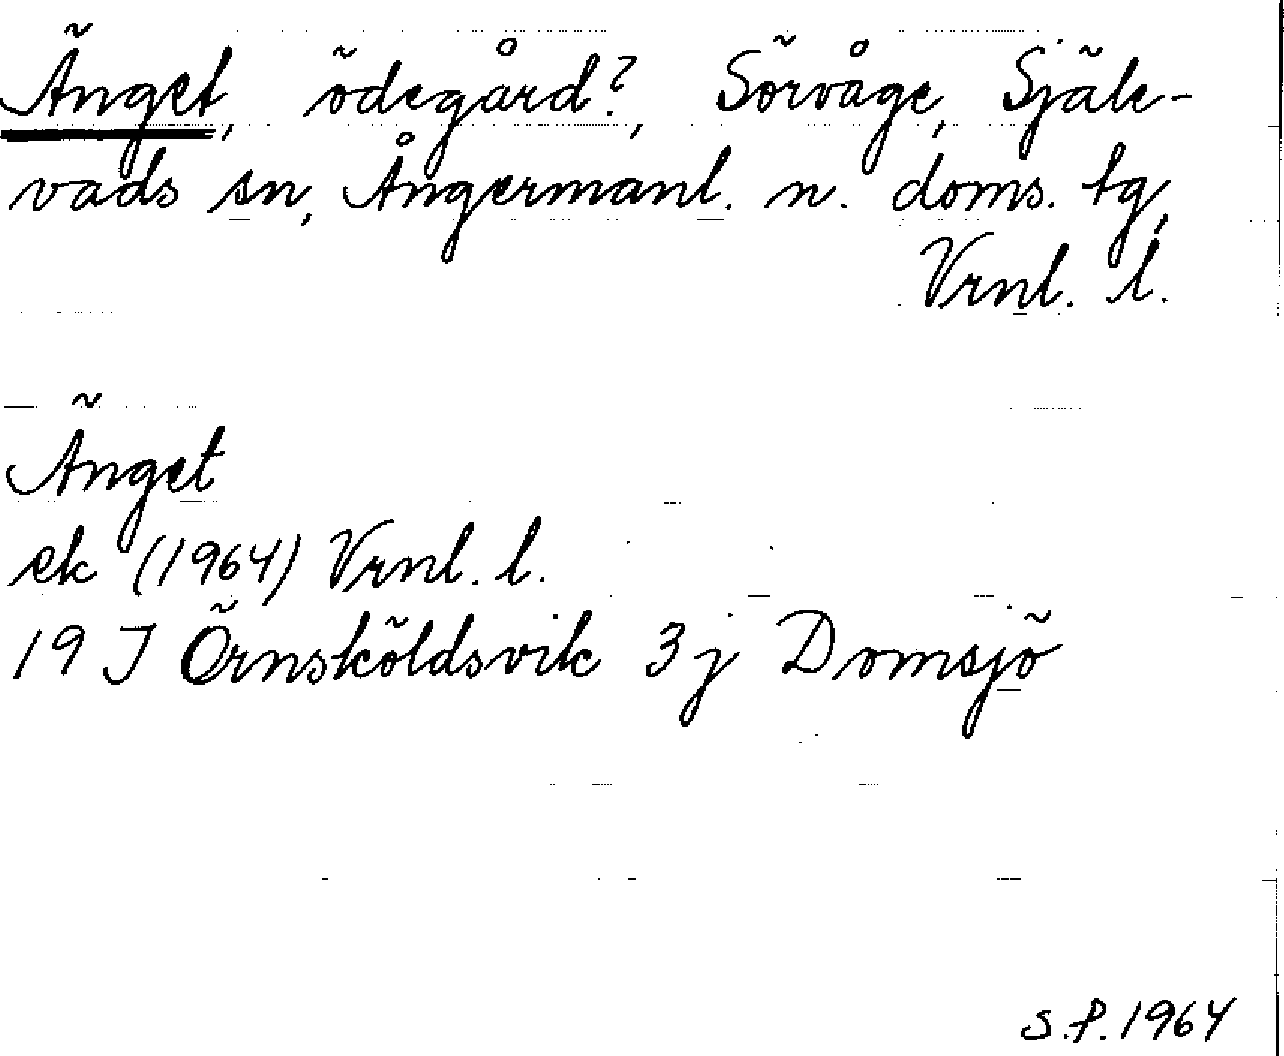 Änget, ödegård?, Sörvåge, Själe-
vads sn, Ångermanl. n. doms. tg,
Vrnl. l.
Änget
ek (1964) Vrnl. l.
19 J Örnsköldsvik 3 j Domsjö
S.P. 1964